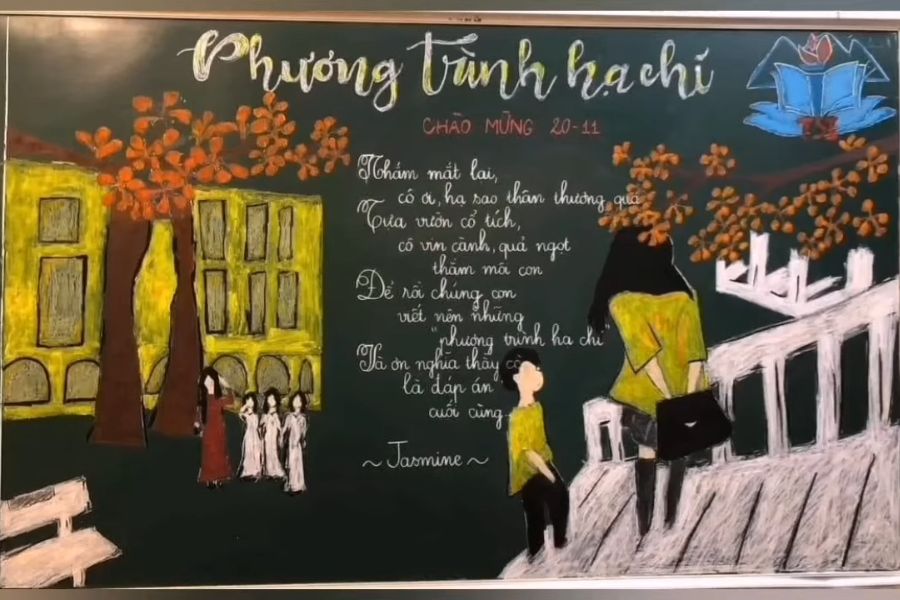 Phương trình hạ chí
CHÀO MỪNG 20-11
Nhắm mắt lại,
cô ơi, hạ sao thân thương quá
Tựa vườn cổ tích,
cô vin cành, quả ngọt
thắm má con
Để rồi chúng con
viết nên những
"phương trình hạ chí"
Và ơn nghĩa thầy cô
là đáp án
cuối cùng
~ Jasmine ~